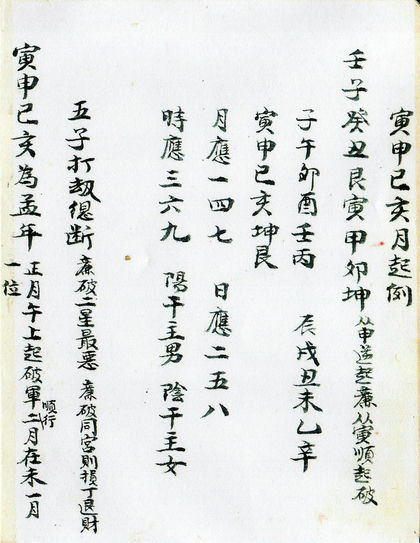 寅申巳亥月起例
壬子癸丑艮寅甲卯坤 从申逆起廉从寅順起破
子午卯酉壬丙 辰戌丑未乙辛
寅申巳亥坤艮
月應一四七 日應二五八
時應三六九 陽干主男 陰干主女
五子打劫總斷 廉破二星最惡 廉破同宮則損丁退財
寅申巳亥為孟年 正月午上起破軍二月在未一月一位
順行